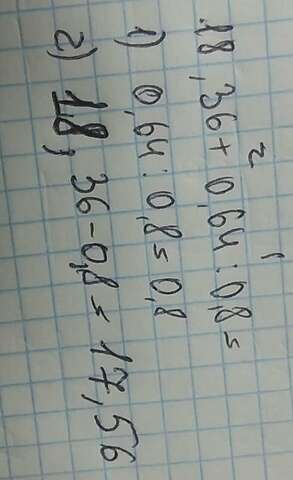 2 1
18,36+0,64:0,8=
1) 0,64:0,8=0,8
2) 18,36-0,8=17,56